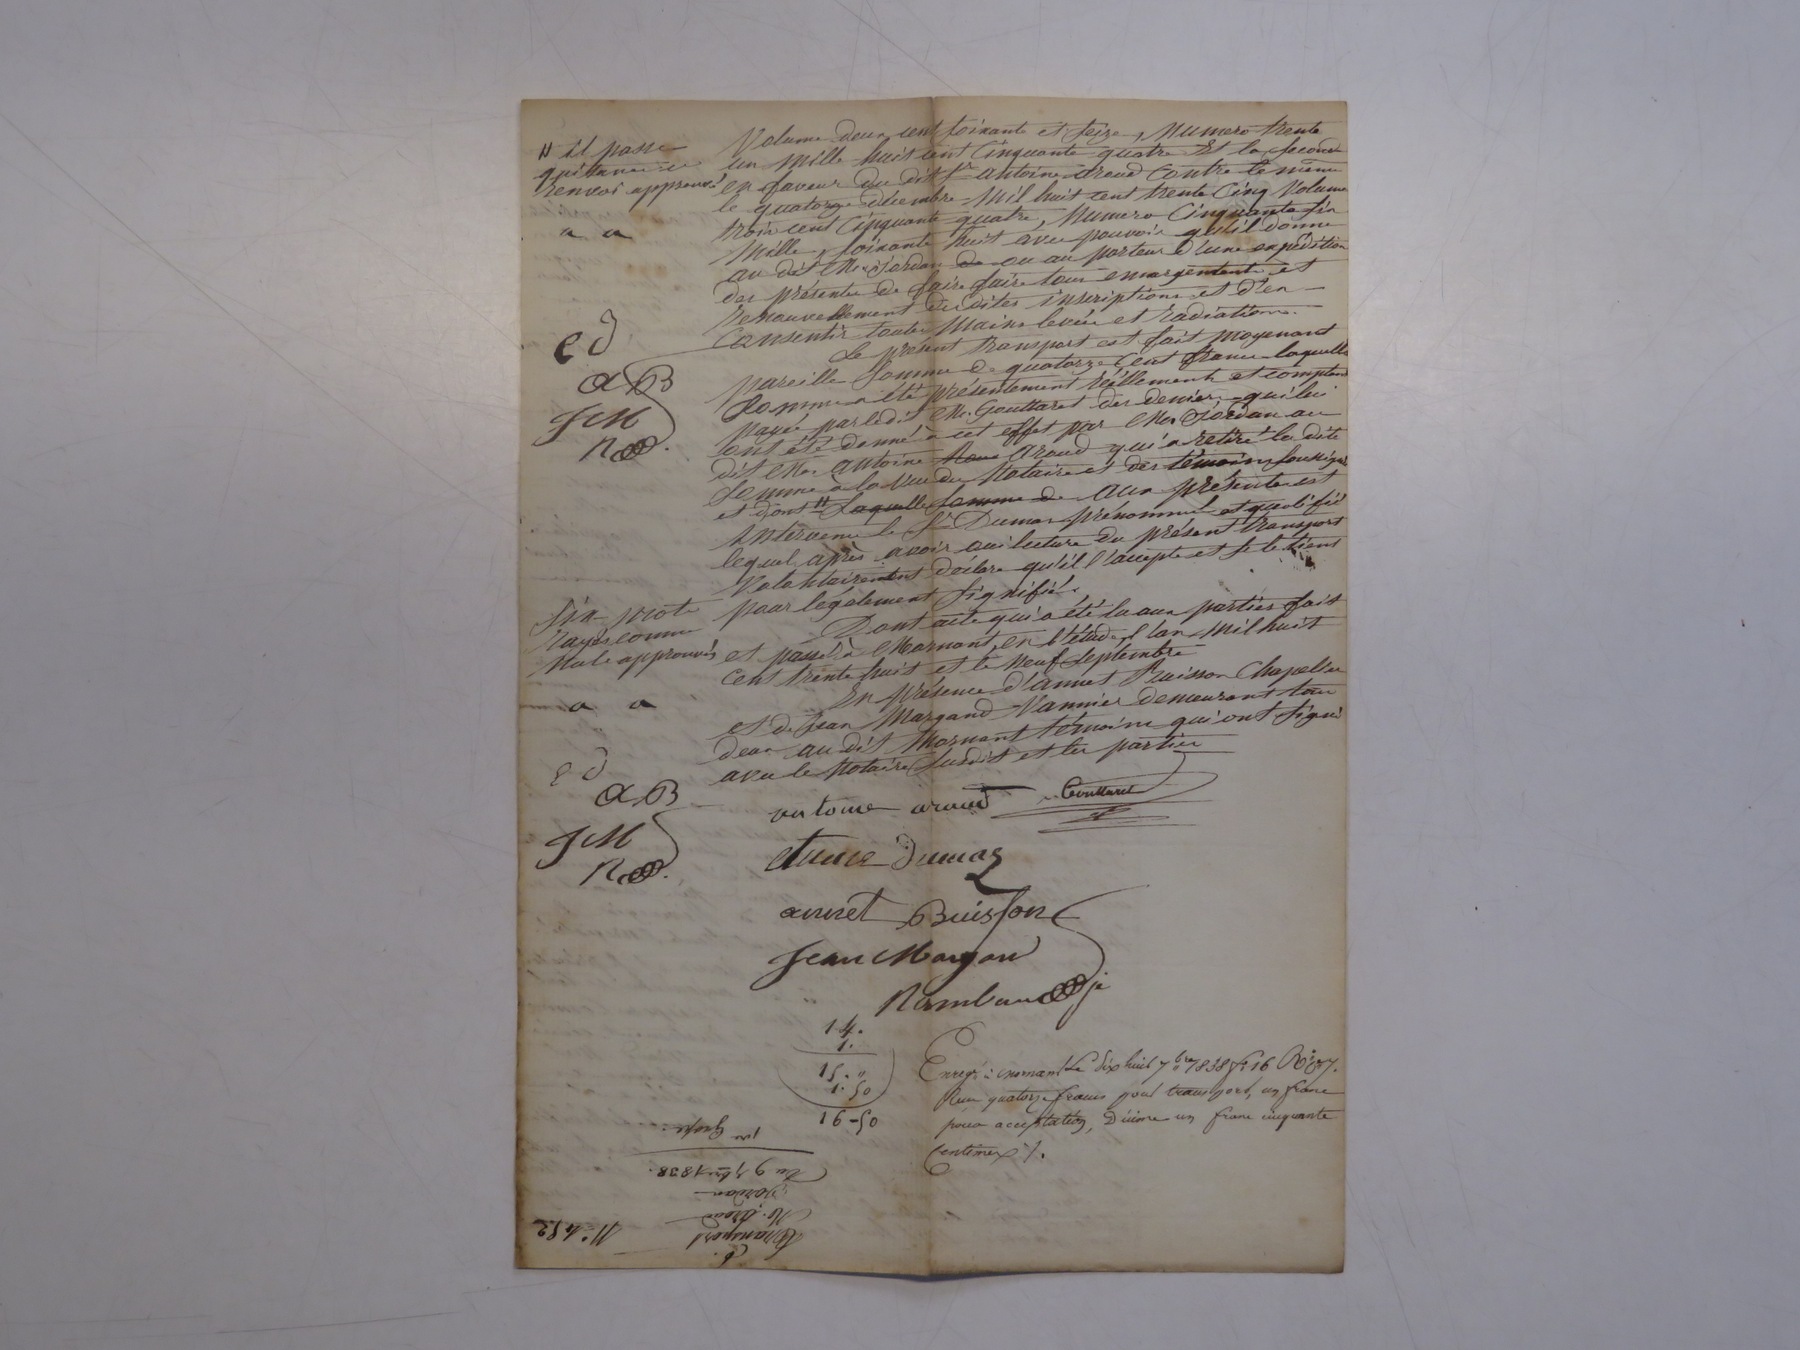 Volume deux cent soixante et seize, Numero trente
un mille huit cent Cinquante quatre Et la seconde
en faveur du dit Sr antoine araud Contre le même
le quatorze décembre Mil huit cent trente Cinq Volume
trois cent Cinquante quatre, Numero Cinquante six
Mille, soixante huit avec pouvoir qu'il donne
au dit Mr Jordan de ou au porteur d'une expédition
des présentes de faire faire tous emargements et
renouvellement des dites inscriptions et d'en
Consentir toutes Mains levées et radiations.
Le présent transport est fait moyenant
pareille Somme de quatorze Cent francs laquelle
Somme a été présentement réellement et comptant
payée par le dit Mr. Gouttaret des deniers qui lui
ont été donné à cet effet par Mr. Jordan au
dit Mr. antoine araud qui a retiré la dite
Somme à la vue du Notaire et des témoins soussignés
et dont # Laquelle Somme de aux présentes est
Intervenu le Sr Dumas prénommé et qualifié
lequel après avoir oui lecture du présent transport
Volontairement déclare qu'il l'accepte et se le tient
pour légalement signifié.
Dont acte qui a été lu aux parties fait
et passé à Mornant, en l'étude, l'an Mil huit
cent trente huit et le neuf Septembre
En présence d'annet Buisson Chapelier
et de Jean Margand Vannier demeurant tous
deux au dit Mornant témoins qui ont signé
avec le Notaire susdit et les parties
# il passe
quittance
renvoi approuvé
a a
e d
a B
J M
R
Six mots
rayés comme
Nuls approuvés
a a
e d
a B
J M
R
antoine araud Gouttaret
etiene Dumas
annet Buisson
Jean Margan
Rambaud
14.
1.
15. "
1. 50
16-50
Enregé à mornant Le dix huit 7bre 1838 fo 16
Reçu quatorze francs pour transport, un franc
pour acceptation, Décime un franc cinquante
Centimes %.
Transport
Mr. Araud
Jordan
Du 9 7bre 1838.
1re Grosse
No 482